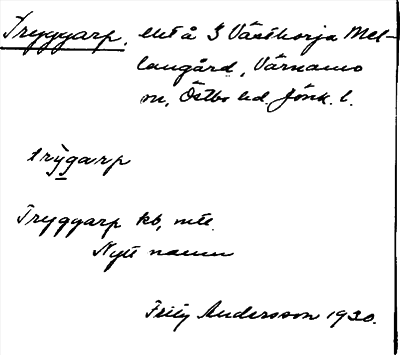 Tryggarp, eht å 3 Västhorja Mel-
langård, Värnamo
sn, Östbo hd. Jönk. l.
trỳgarp
Tryggarp kb, mtl.
Nytt namn
Fritz Andersson 1930.